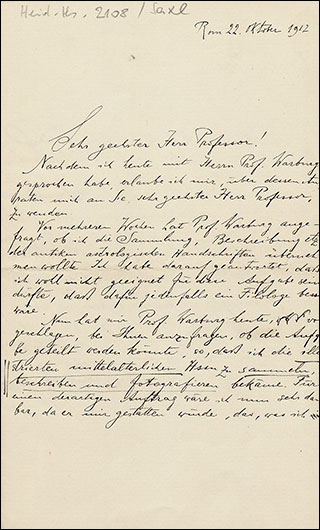 Heid. Hs. 2108 / Saxl
Rom 22. Oktober 1912
Sehr geehrter Herr Professor!
Nachdem ich heute mit Herrn Prof. Warburg
gesprochen habe, erlaube ich mir, über dessen An-
raten mich an Sie, sehr geehrter Herr Professor,
zu wenden.
Vor mehreren Wochen hat Prof. Warburg ange-
fragt, ob ich die Sammlung, Beschreibung etc.
der antiken astrologischen Handschriften überneh-
men wollte. Ich habe darauf geantwortet, dass
ich wohl nicht geeignet für diese Aufgabe sein
dürfte, dass dafür jedenfalls ein Filologe besser
wäre.
Nun hat mir Prof. Warburg heute, vor-
geschlagen, bei Ihnen anzufragen, ob die Aufga-
be geteilt werden könnte, so, dass ich die illu-
strierten mittelalterlichen Hssn zu sammeln,
beschreiben und fotografieren bekäme. Für
einen derartigen Auftrag wäre ich nun sehr dank-
bar, da er mir gestatten würde, das, was ich in